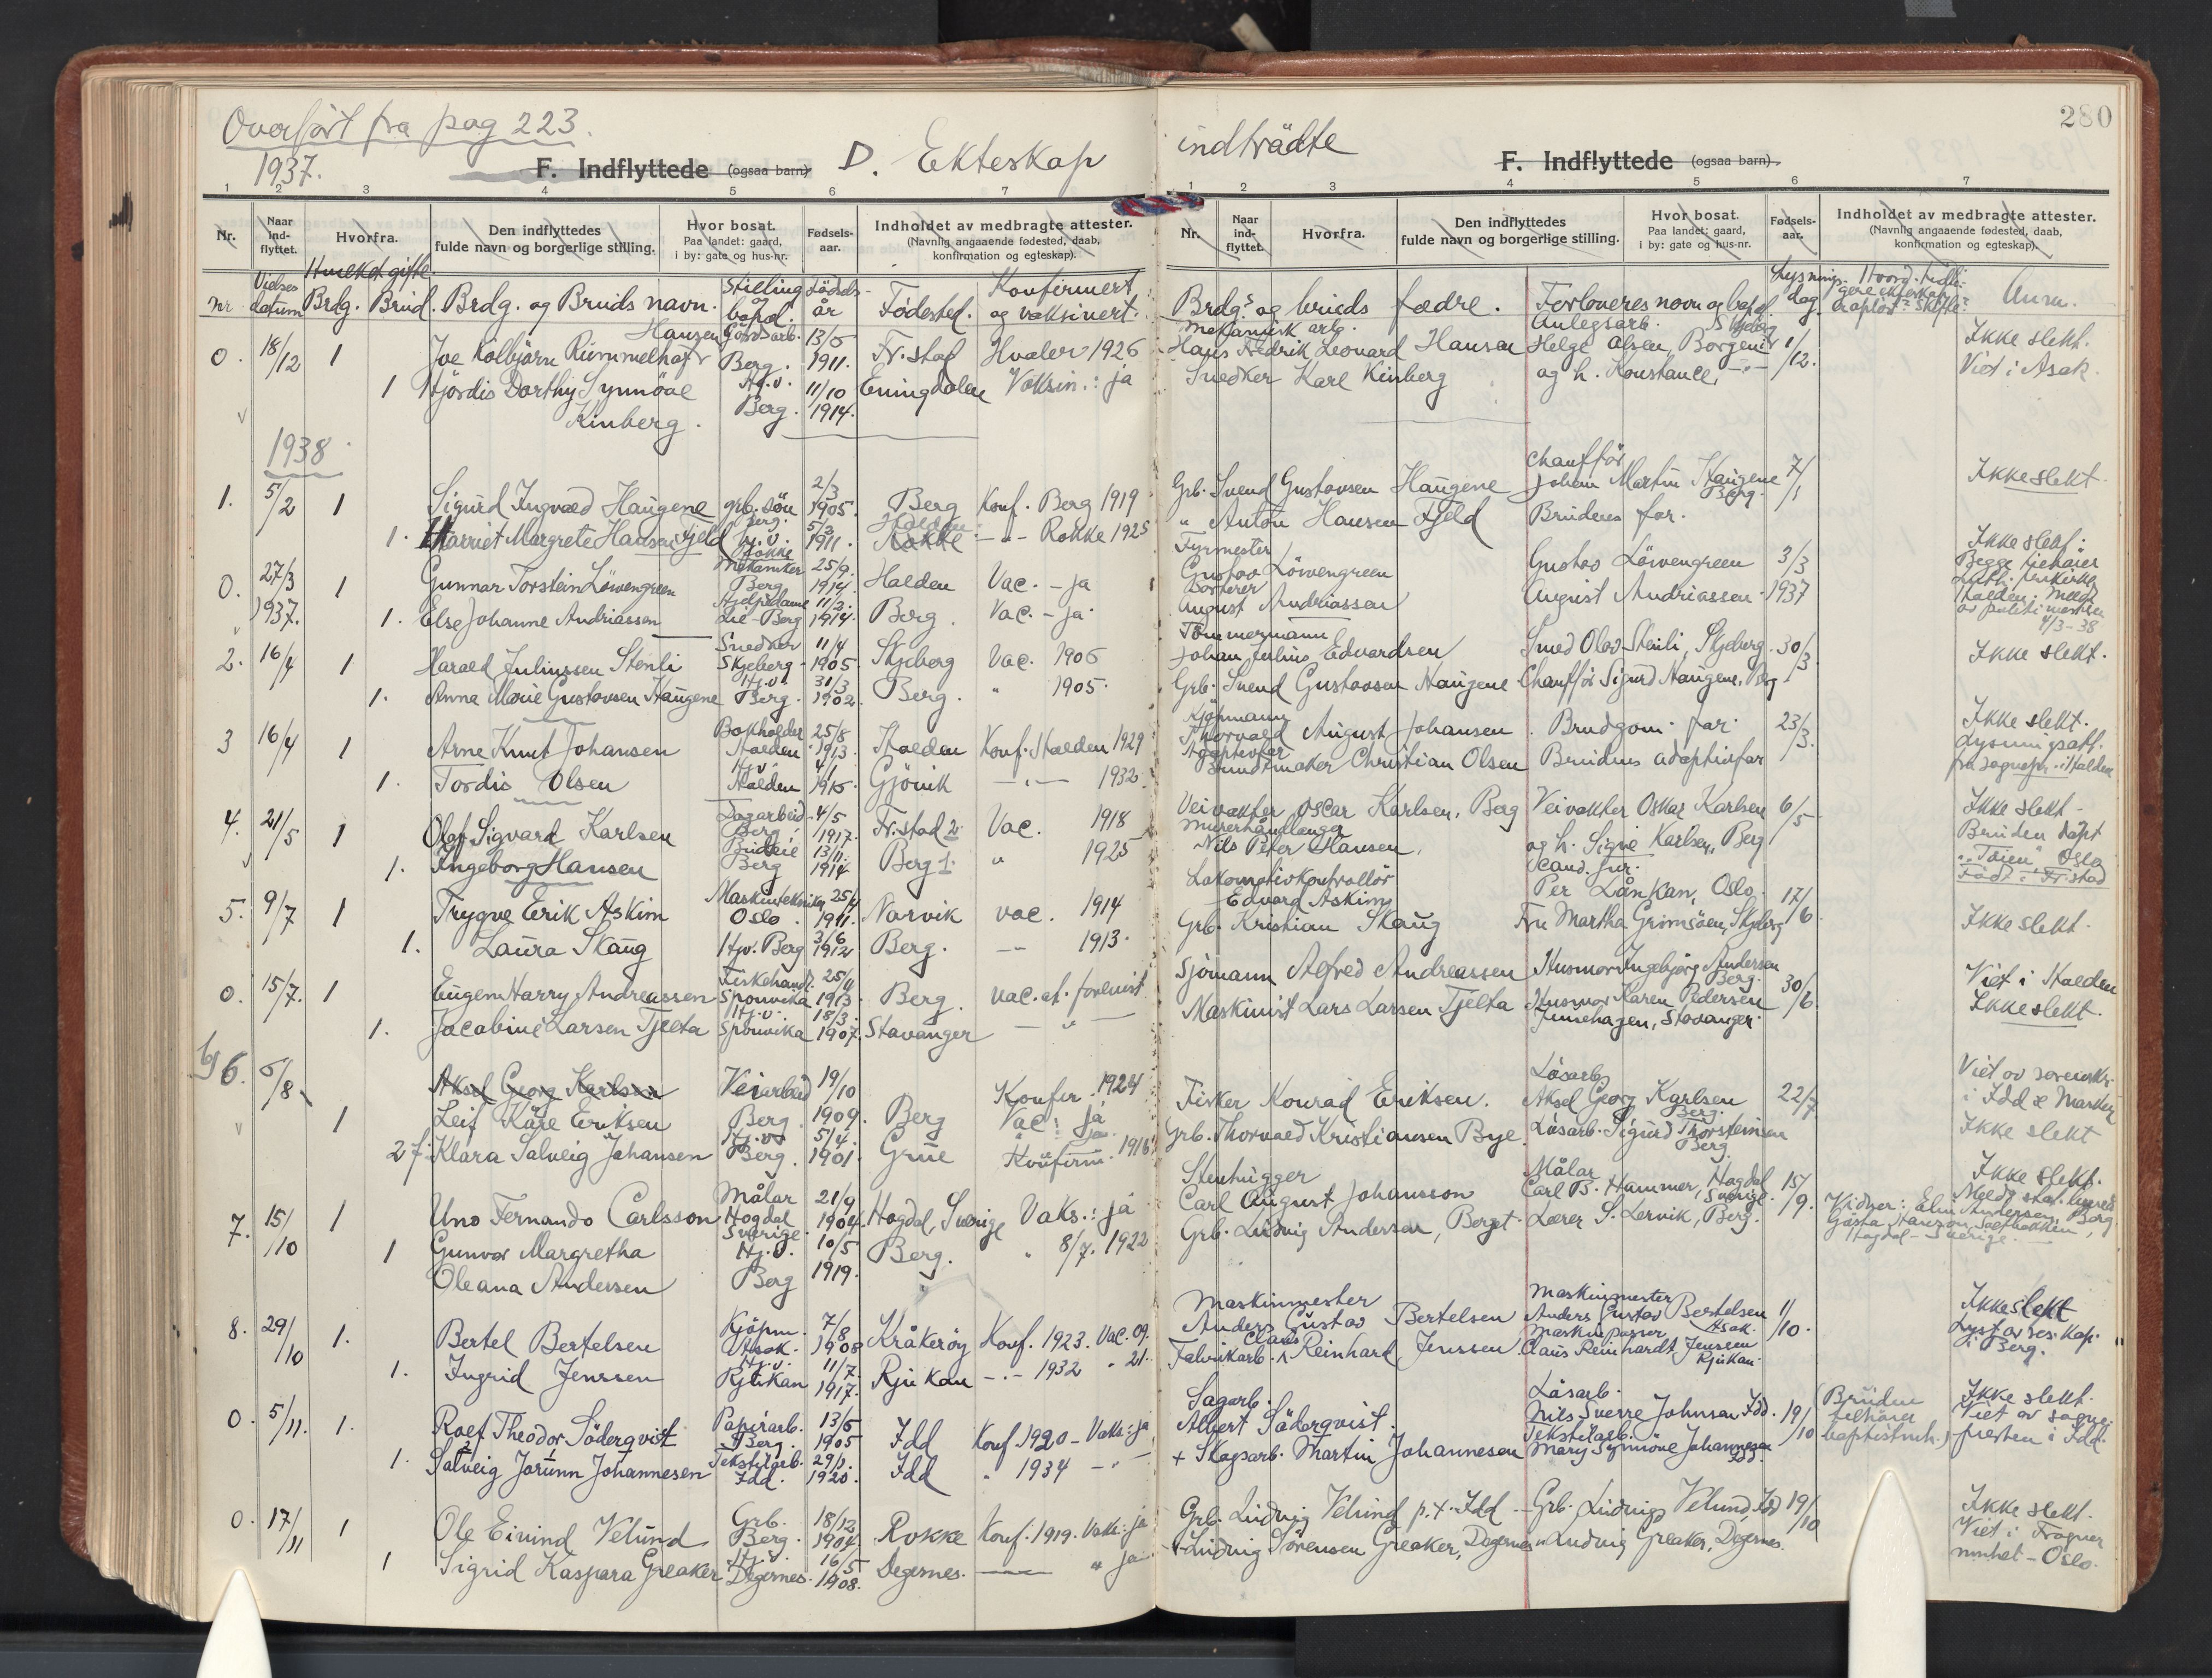 Overført fra pag 223.
1937.
F. Indflyttede (ogsaa barn)
D. Ekteskap
1 2 3 4 5 6 7
Nr.
Naar ind-flyttet.
Hvorfra.
Den indflyttedes fulde navn og borgerlige stilling.
Hvor bosat. Paa landet: gaard, i by: gate og hus-nr.
Fødsels-aar.
Indholdet av medbragte attester. (Navnlig angaaende fødested, daab, konfirmation og egteskap).
nr. Vielses datum Hvilket gifte. Brdg. Brud. Brdg. og Bruds navn. Stilling bopæl. Fødsels-år Fødested. Konfirmert og vaksinert.
0. 18/12 1 Hansen Gårdsarb. 13/5
Kolbjørn Rummelhoff Berg. 1911. Fr.stad Hvaler 1926
1 Hjördis Dorthy Synnöve Hj.v. 11/10 Enningdalen Vaksin.: ja
Kinberg. Berg. 1914.
1938
1. 5/2 1 Sigurd Ingvald Haugene grb. sön 2/3 1905. Berg Konf. Berg 1919
Berg.
1. Harriet Margrete Hansen Fjeld hj.v. Rokke 5/3 1911. Rokke -"- Rokke 1925
0. 27/3 1937. 1 Gunnar Torstein Löwengreen Mekaniker Berg 25/9 1914. Halden Vac. - ja
1. Else Johanne Andriassen Berg 11/3 1914. Berg. Vac. - ja
2. 16/4 1 Harald Juliussen Stenli Snedker Skjeberg 11/4 1905. Skjeberg Vac. 1906
1. Anna Marie Gustavsen Haugene Hj.v. Berg. 31/3 1902. Berg. " 1905.
3 16/4 1 Arne Knut Johansen Bokholder Halden 25/8 1913. Halden Konf. Halden 1929
1. Tordis Olsen Hj.v. Halden 4/1 Gjövik -"- 1932
4. 21/5 1 Olaf Sigvard Karlsen Berg 4/5 1917. Fr.stad Vac. 1918
1. Ingeborg Hansen Budeie Berg 13/11 1914 Berg 1. " 1925
5. 9/7 1 Trygve Erik Askim Maskintekniker Oslo. 1911. Narvik vac. 1914
1. Laura Skaug Hjv. Berg 3/6 1912 Berg. -"- 1913.
0. 15/7. 1 Eugen Harry Andreassen Fiskehandl. Sponvika 25/4 1913 Berg. vac. at. forevist
1. Jacobine Larsen Tjelta Hj.v. Sponvika 18/3 1907. Stavanger - " -
6. 6/8 Aksel Georg Karlsen Veiarbeid 19/10 Konfir. 1924
1 Leif Kåre Eriksen Berg. 1909. Berg Vac: ja
27. Klara Solveig Johansen Hj.v. Berg. 5/4 1901. Grue Konfirm. 1916
7. 15/10 1 Uno Fernando Carlsson Målar Hogdal Sverige 21/9 1904. Hogdal, Sverige Vaks.: ja
1 Gunvor Margretha Hj.v. 10/5 Berg. " 8/7. 1922
Oleana Andersen Berg 1919.
8. 29/10 1. Bertel Bertelsen Kjöpm. Asak. 7/8 1908 Kråkeröy Konf. 1923. Vac. 09.
1. Ingrid Jenssen Hj.v. Rjukan 11/7 1917. Rjukan -"- 1932 " 21.
0. 5/11. 1. Rolf Theodor Söderqvist Papirarb. Berg. 13/5 1905 Idd Konf. 1920 - Vaks: ja
1. Solveig Jorunn Johannesen Tekstilarb. Idd. 1920. Idd " 1934 -"-
0. 17/11 1 Ole Eivind Velund Grb. Berg. 18/12 1904. Rokke Konf. 1919. Vaks: ja
1 Sigrid Kaspara Greaker Hj.v. Degernes. 16/5 1908. Degernes. " ja
280
indträdte
F. Indflyttede (ogsaa barn).
1 2 3 4 5 6 7
Nr.
Naar ind-flyttet.
Hvorfra.
Den indflyttedes fulde navn og borgerlige stilling.
Hvor bosat. Paa landet: gaard, i by: gate og hus-nr.
Fødsels-aar.
Indholdet av medbragte attester. (Navnlig angaaende fødested, daab, konfirmation og egteskap).
Brdgs og bruds fædre. Forloveres navn og bopæl. Lysnings-dag. Anm.
Mekanisk arb. Anlegsarb. Skjeberg
Hans Fredrik Leonard Hansen Helge Olsen, Borgen 1/12. Ikke slekt.
Snedker Karl Kinberg og h. Konstance, -"- Viet i Asak.
Chaufför
Grb. Svend Gustavsen Haugene Johan Martin Haugene Berg. 7/1 Ikke slekt.
" Anton Hansen Fjeld Brudens far.
Fyrmester
Gustav Löwengreen Gustav Löwengreen 3/3 Ikke slekt.
August Andriassen August Andriassen 1937
Begge tilhører
4/3-38
Tömmermann
Johan Julius Edvardsen Smed Olav Stenli, Skjeberg. 30/3 Ikke slekt.
Grb. Svend Gustavsen Haugene Chaufför Sigurd Haugene, Berg
Kjöpmann
Thorvald August Johansen. Brudgom. far. 23/3. Ikke slekt.
Adoptivfar
Buntmaker Christian Olsen Brudens adoptivfar
Veivokter Oscar Karlsen, Berg Veivokter Oskar Karlsen 6/5 Ikke slekt.
Murerhåndlanger
Nils Peter Hansen, og h. Signe Karlsen, Berg Bruden döpt "Töien" Oslo
Født i Fr.stad
Lokomotivkontrollör Cand. jur.
Edvard Askim Per Lånkan, Oslo. 17/6
Grb. Kristian Skaug Fru Martha Grimsöen, Skjeberg Ikke slekt.
Sjömann Alfred Andreassen Husmor Ingebjörg Andersen Berg. 30/6 Viet i Halden
Maskinist Lars Larsen Tjelta Husmor Karen Pedersen Ikke slekt.
Stavanger.
Låsarb.
Fisker Konrad Eriksen. Aksel Georg Karlsen Berg. 22/7 Viet av sorenskr. i Idd & Marker
Grb. Thorvald Kristiansen Bye. Låsarb. Sigurd Thorsteinsen Berg. Ikke slekt
Stenhugger Målar
Carl August Johansson Carl B. Hammer, Hogdal Sverige. 15/9. Ikke slekt.
Grb. Ludvig Andersen, Berget. Lærer S. Lervik, Berg.
Vidner: Elin Andersen, Berg
Gösta Hansson,
Hogdal - Sverige.
Maskinmester Maskinmester
Anders Gustav Bertelsen Anders Gustav Bertelsen Asak. 1/10. Ikke slekt
Fabrikarb. Claus Reinhard Jenssen Maskinpasser Claus Reinhardt Jenssen Rjukan. Lyst av res. kap. i Berg.
Sagarb. Låsarb.
Albert Söderqvist. Nils Sverre Johnsen Idd. 19/10 Bruden tilhører baptistmh. Ikke slekt.
Viet av sognepresten i Idd.
+ Skogsarb. Martin Johannesen Tekstilarb. Mary Synnöve Johannesen Idd.
Grb. Ludvig Velund p.t. Idd - Grb. Ludvig Velund, Idd 19/10 Ikke slekt.
+ Ludvig Sörensen Greaker, Degernes " Ludvig Greaker, Degernes. Viet i Frogner
menhet - Oslo.